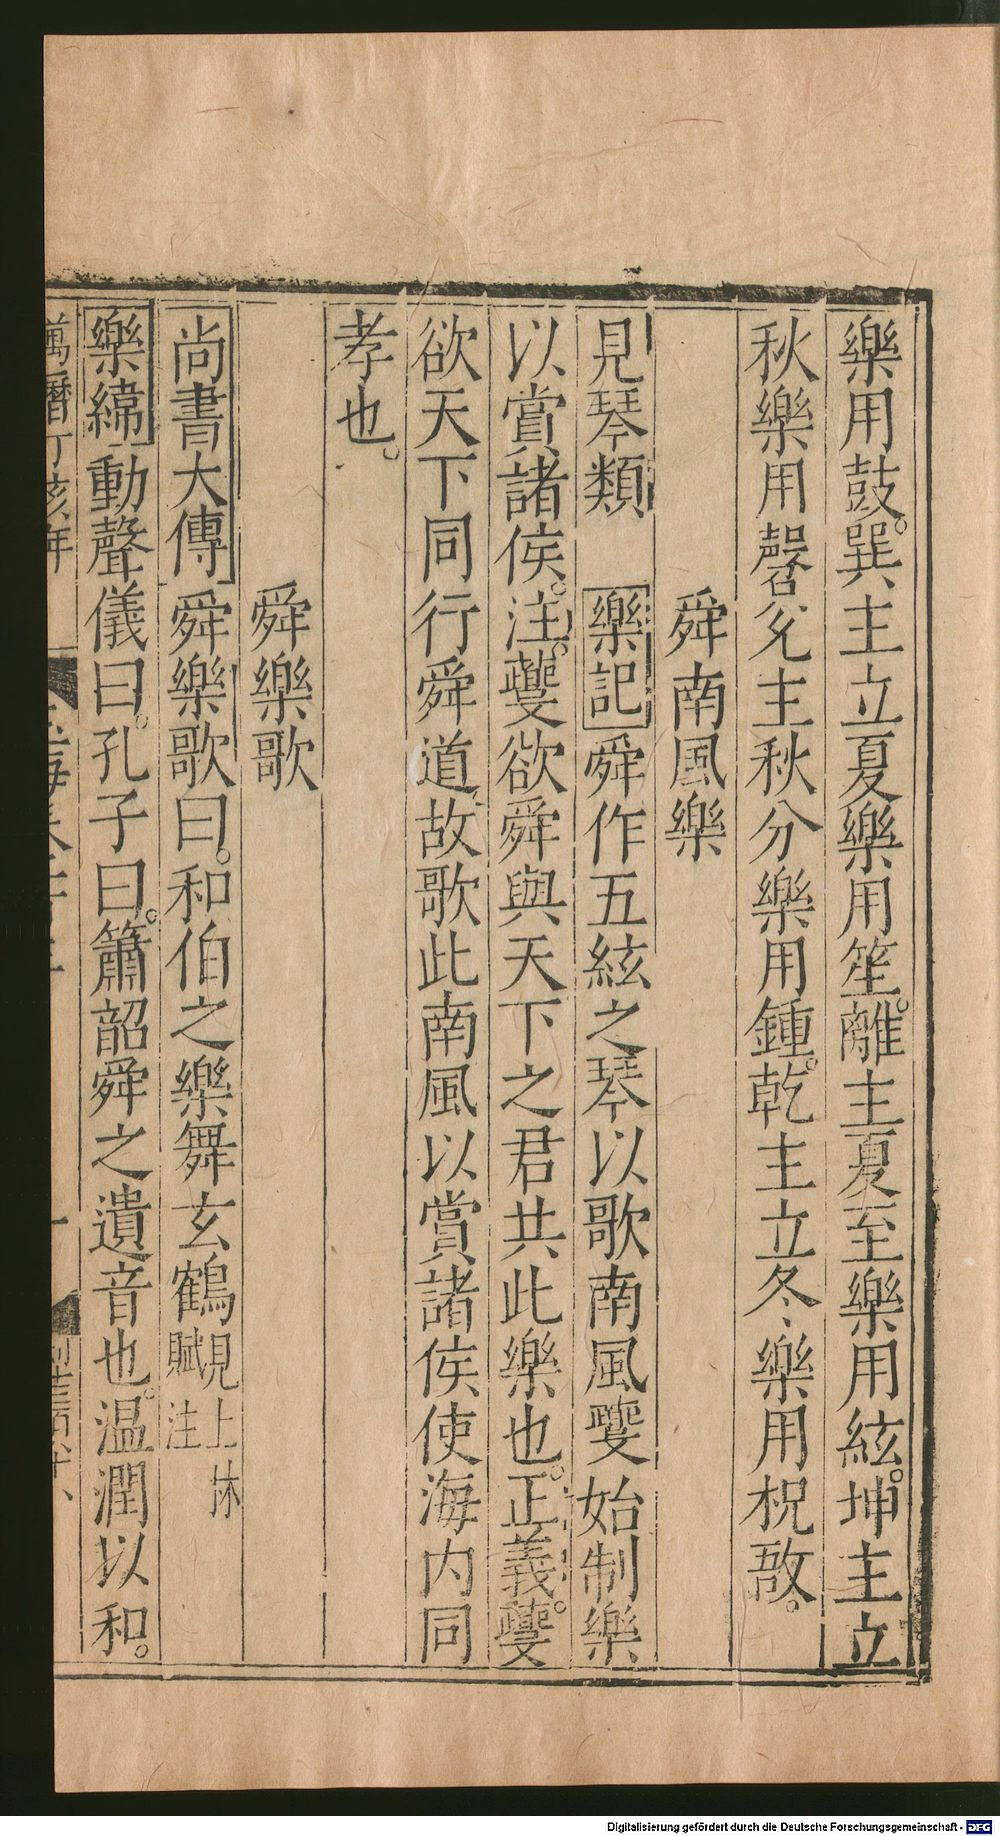 樂用鼓。巽主立夏樂用笙。離主夏至樂用絃。坤主立
秋樂用磬兊主秋分樂用鍾。乾主立冬樂用柷敔。
舜南風樂
見琴類 樂記舜作五絃之琴以歌南風夔始制樂
以賞諸侯。注。夔欲舜與天下之君共此樂也。正義。夔
欲天下同行舜道故歌此南風以賞諸侯使海内同
孝也。
舜樂歌
尚書大傳舜樂歌曰。和伯之樂舞玄鶴見上休
賦注
樂緯動聲儀曰。孔子曰。簫韶舜之遺音也。温潤以和。
萬曆丁亥年
Digitalisierung gefördert durch die Deutsche Forschungsgemeinschaft - DFG